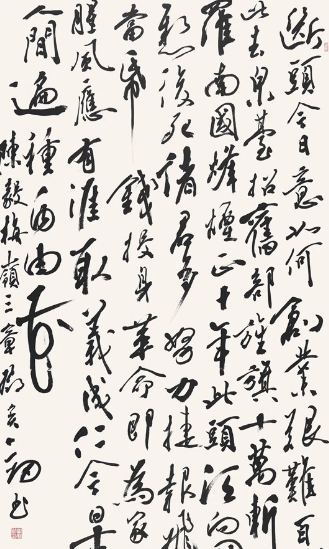 斷頭今日意如何創業艱難百
此去泉臺招舊部旌旗十萬斬
羅南國烽煙正十年此頭須向國
懸後死諸君多努力捷報飛
當紙錢投身革命即為家
腥風應有涯取義成仁今日
人間遍種自由花
陳毅梅嶺三章